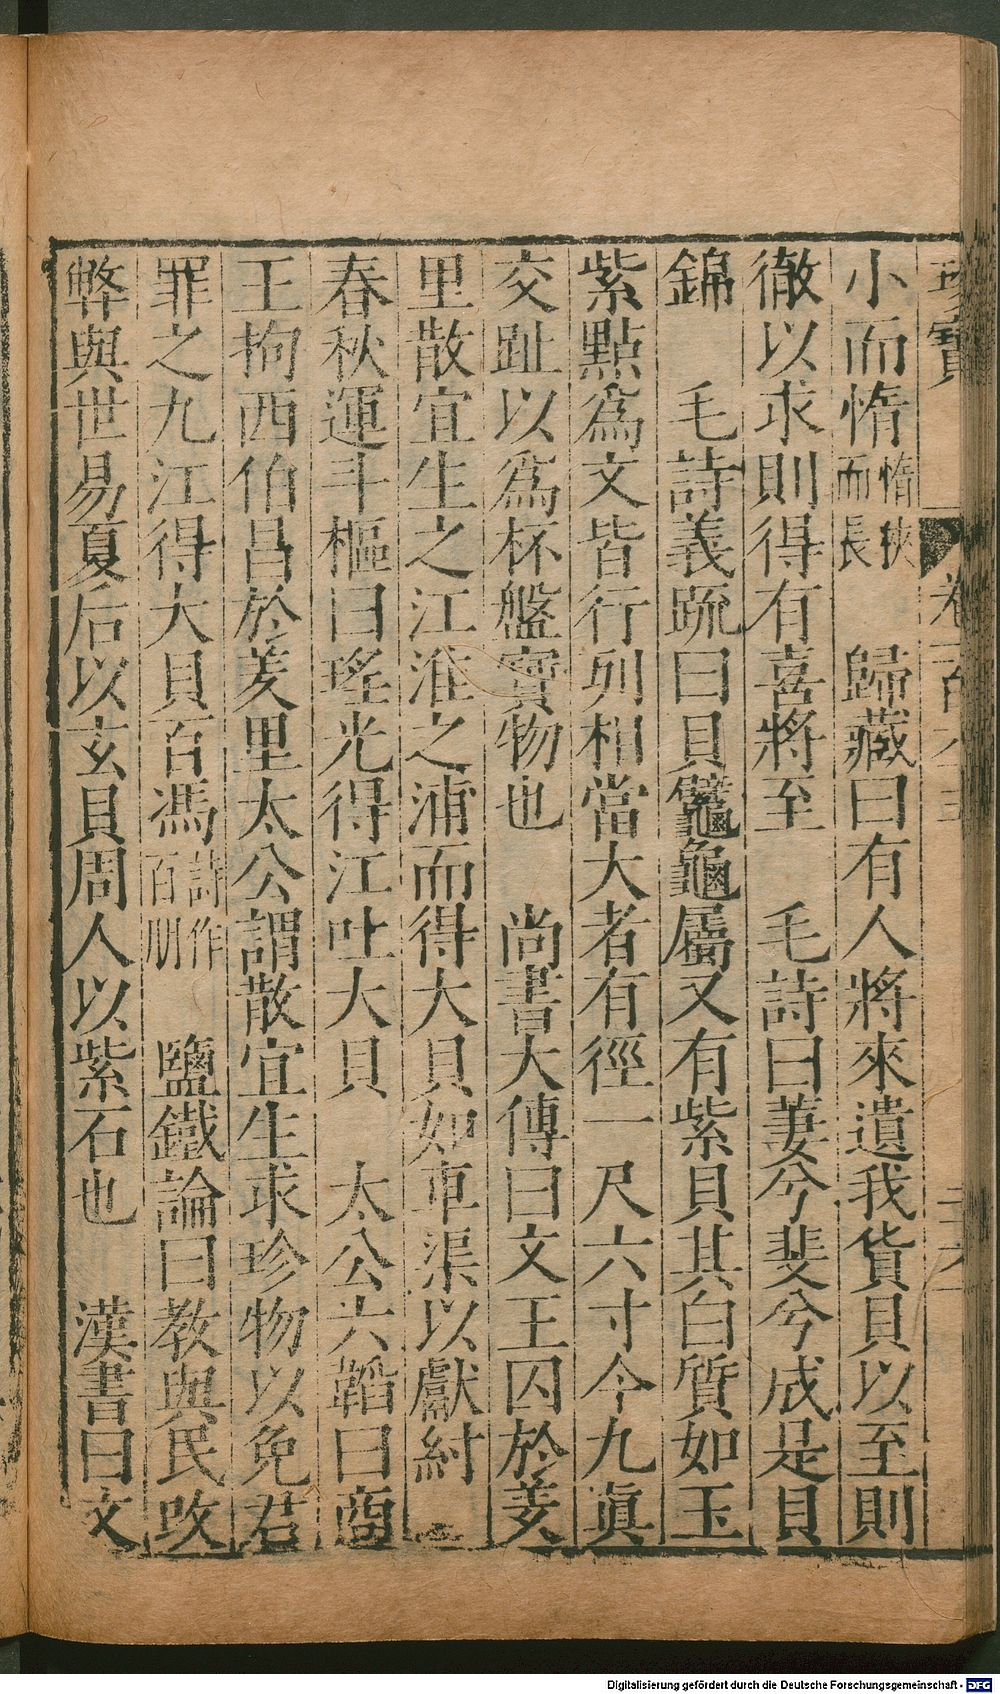 寶
卷一百
小而惰惰狹而長　歸藏曰有人將來遺我貨貝以至則
徹以求則得有喜將至　毛詩曰萋兮斐兮成是貝
錦　毛詩義疏曰貝鼊龜屬又有紫貝其白質如玉
紫點爲文皆行列相當大者有徑一尺六寸今九真
交趾以爲杯盤實物也　尚書大傳曰文王囚於羑
里散宜生之江淮之浦而得大貝如車渠以獻紂
春秋運斗樞曰瑤光得江吐大貝　太公六韜曰商
王拘西伯昌於羑里太公謂散宜生求珍物以免君
罪之九江得大貝百馮詩作百朋　鹽鐵論曰教與民改
弊與世易夏后以玄貝周人以紫石也　漢書曰文
Digitalisierung gefördert durch die Deutsche Forschungsgemeinschaft - DFG